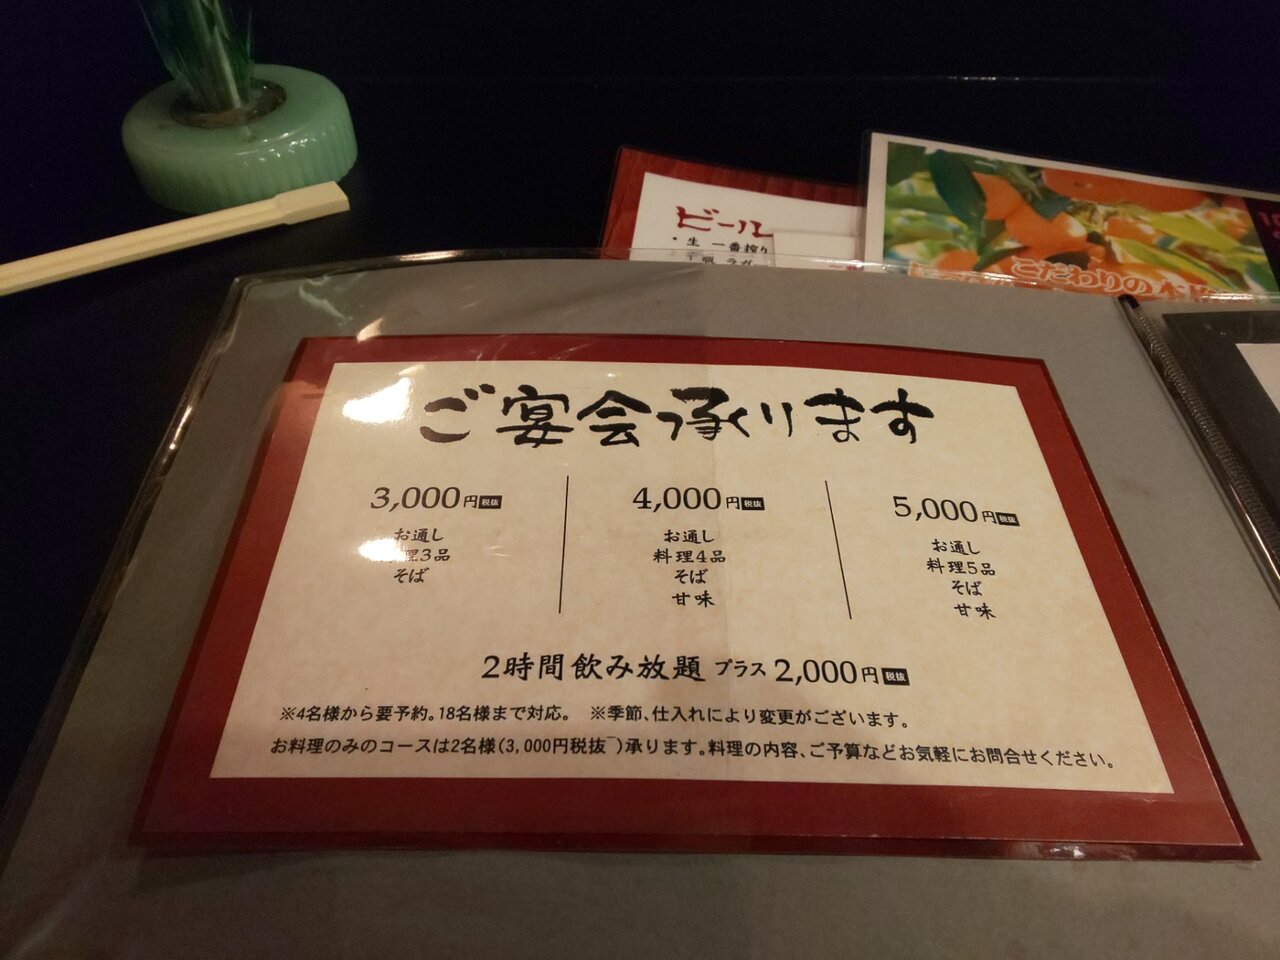 ビール
・生 一番搾り
こだわりの本格
ご宴会承ります
3,000円税抜
お通し
料理3品
そば
4,000円税抜
お通し
料理4品
そば
甘味
5,000円税抜
お通し
料理5品
そば
甘味
2時間飲み放題 プラス 2,000円税抜
※4名様から要予約。18名様まで対応。 ※季節、仕入れにより変更がございます。
お料理のみのコースは2名様(3,000円税抜~)承ります。料理の内容、ご予算などお気軽にお問合せください。